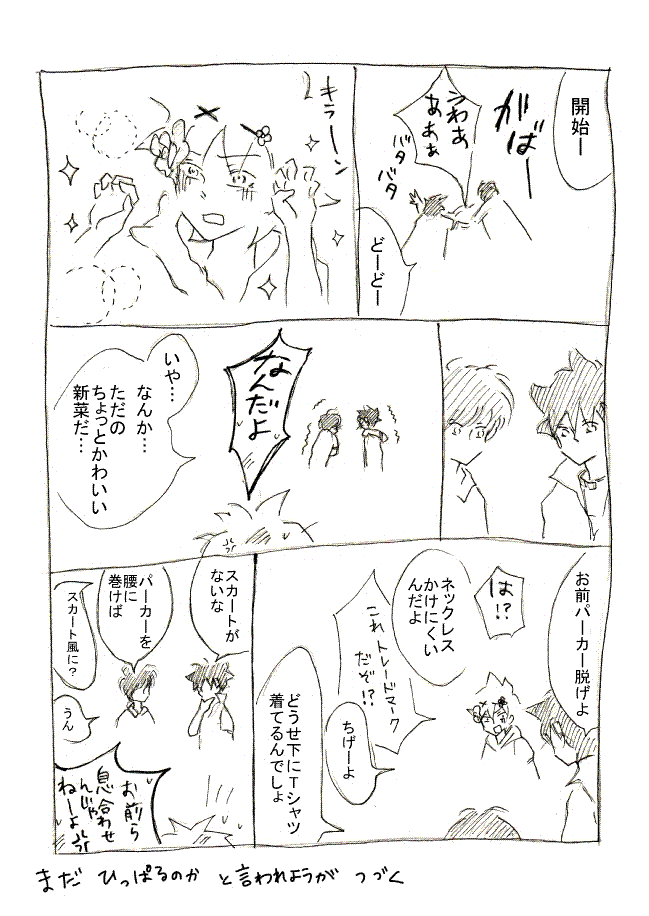 開始ー
がばー
うわあ
あああ
バタ
バタ
どーどー
キラーン
なんだよ
いや…
なんか…
ただの
ちょっとかわいい
新菜だ…
お前パーカー脱げよ
は!?
ネックレス
かけにくい
んだよ
これトレードマーク
だぞ!?
ちげーよ
どうせ下にTシャツ
着てるんでしょ
スカートが
ないな
パーカーを
腰に
巻けば
スカート風に?
うん
お前ら
息合わせ
んじゃ
ねーよ
まだ ひっぱるのか と言われようが つづく